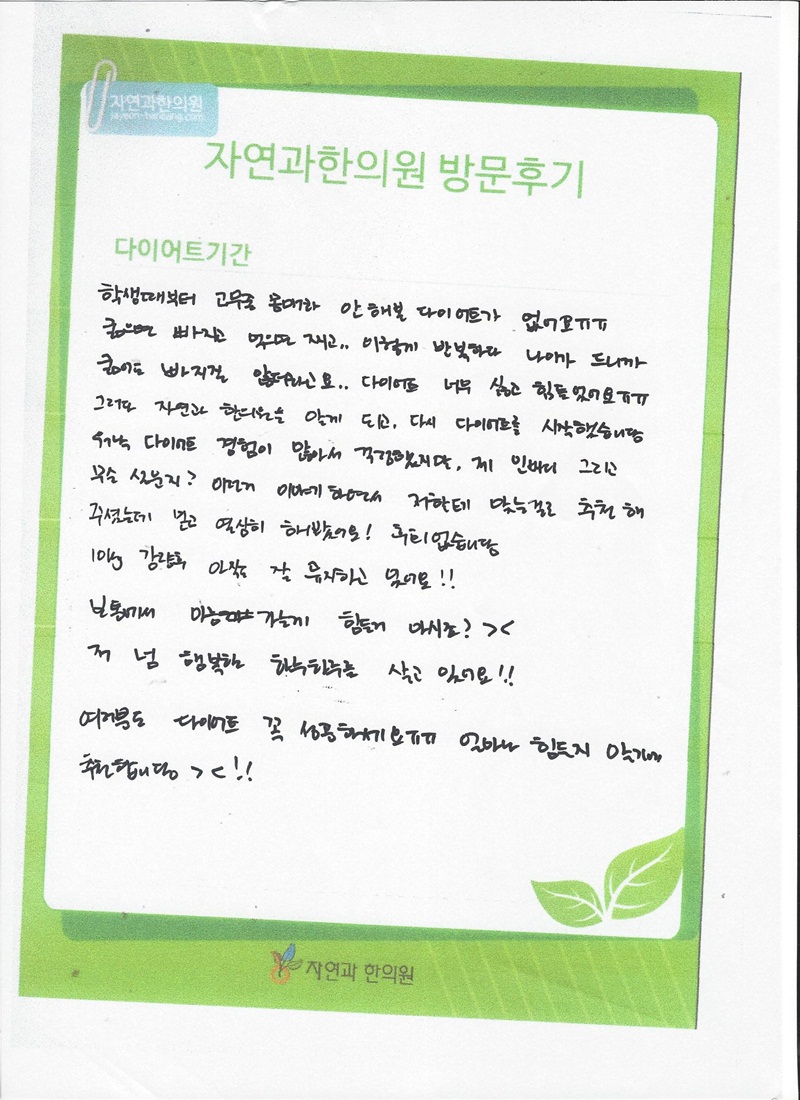 자연과한의원
jayeon-hanbang.com
자연과한의원 방문후기
다이어트기간
학생때부터 고무줄 몸매라 안해본 다이어트가 없어요ㅠㅠ
굶으면 빠지고 먹으면 찌고.. 이렇게 반복하다 나이가 드니까
굶어도 빠지질 않더라고요.. 다이어트 너무 싫고 힘들었어요ㅠㅠ
그러다 자연과 한의원을 알게 되고, 다시 다이어트를 시작했습니당
워낙 다이어트 경험이 많아서 걱정했지만, 제 인바디 그리고
무슨 성분지? 이런거 이야기 하면서 저한테 맞는걸로 추천 해
주셨는데 믿고 열심히 해봤어요! 후회없습니당
10kg 감량후 아직도 잘 유지하고 있어요!!
보통에서 마름 가는게 힘들거 아시죠? ><
저 넘 행복한 하루하루를 살고 있어요!!
여러분도 다이어트 꼭 성공하세요ㅠㅠ 얼마나 힘든지 알기에
추천합니당 > < !!
자연과 한의원